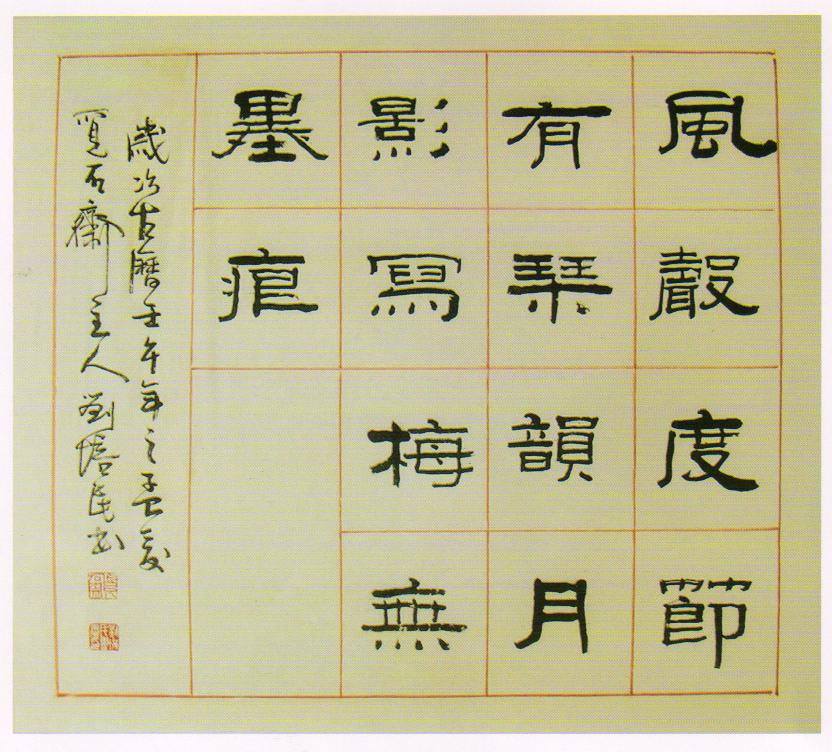 風聲度節
有琴韻月
影寫梅無
墨痕
歲次古曆壬午年之孟夏
覓石齋主人劉培民書